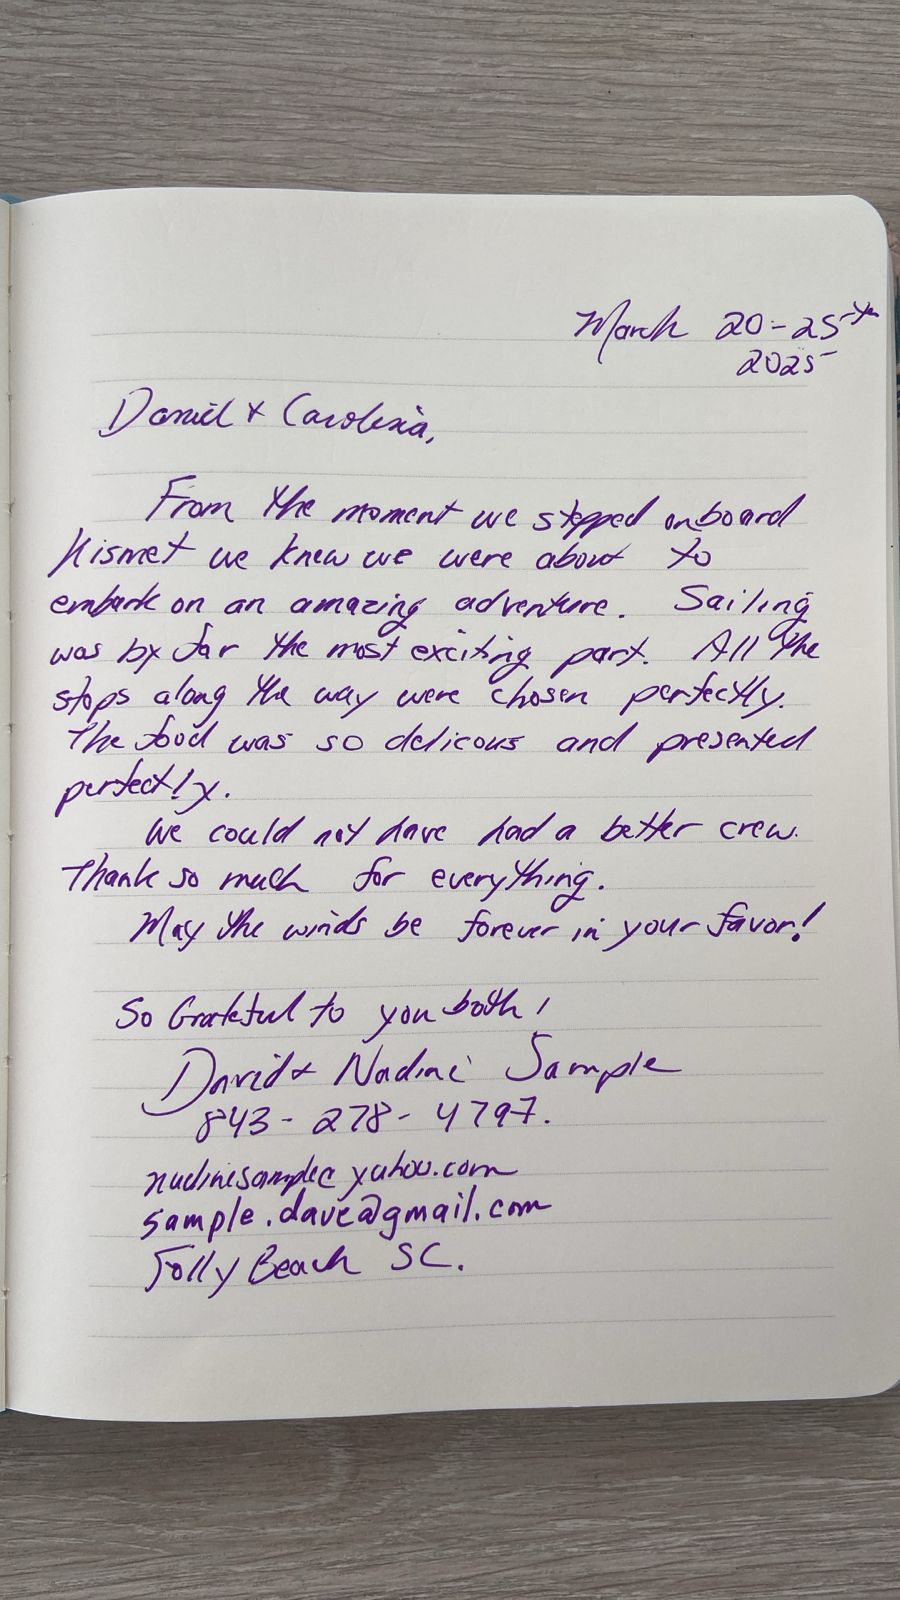 March 20-25th
2025
Daniel & Carolina,
From the moment we stepped onboard
Kismet we knew we were about to
embark on an amazing adventure. Sailing
was by far the most exciting part. All the
stops along the way were chosen perfectly.
The food was so delicous and presented
perfectly.
We could not have had a better crew.
Thank so much for everything.
May the winds be forever in your favor!
So Grateful to you both!
David & Nadine Sample
843-278-4797.
nadinesample@yahoo.com
sample.dave@gmail.com
Folly Beach SC.